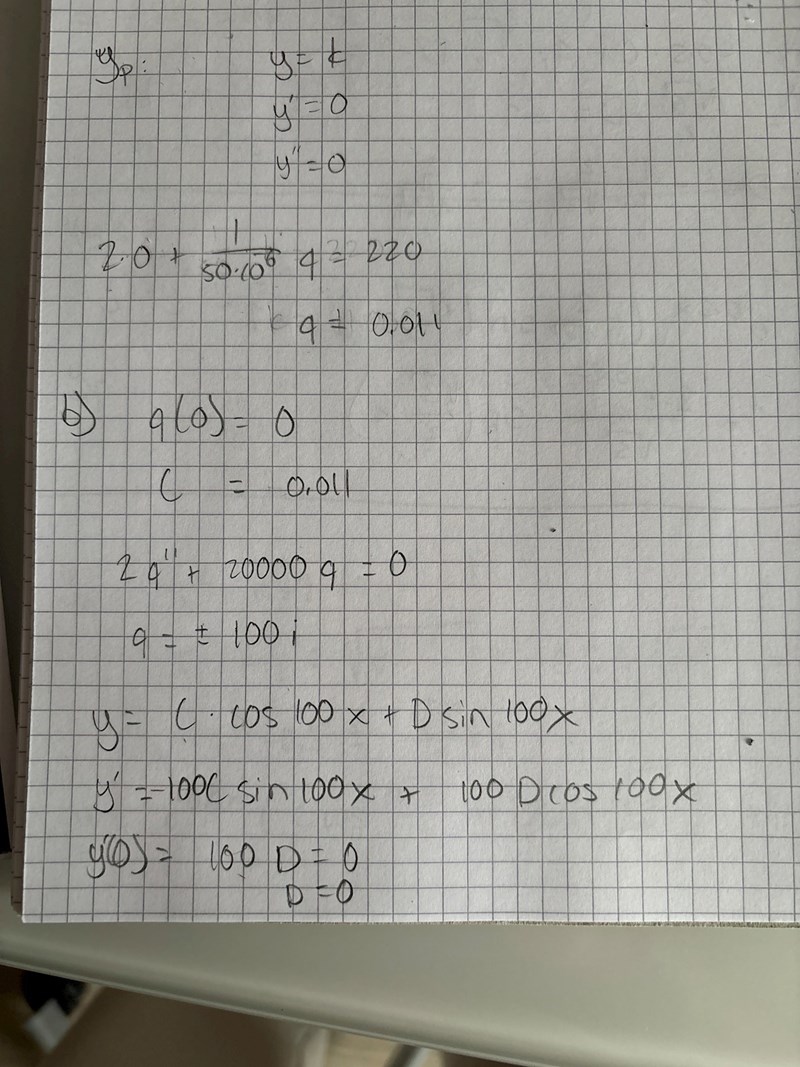 yp: y = k
y' = 0
y'' = 0
2·0 + 1/(50·10⁻⁶) q = 220
q = 0.011
b) q(0) = 0
C = 0.011
2q'' + 20000 q = 0
q = ± 100 i
y = C · cos 100x + D sin 100x
y' = -100C sin 100x + 100 D cos 100x
y'(0) = 100 D = 0
D = 0